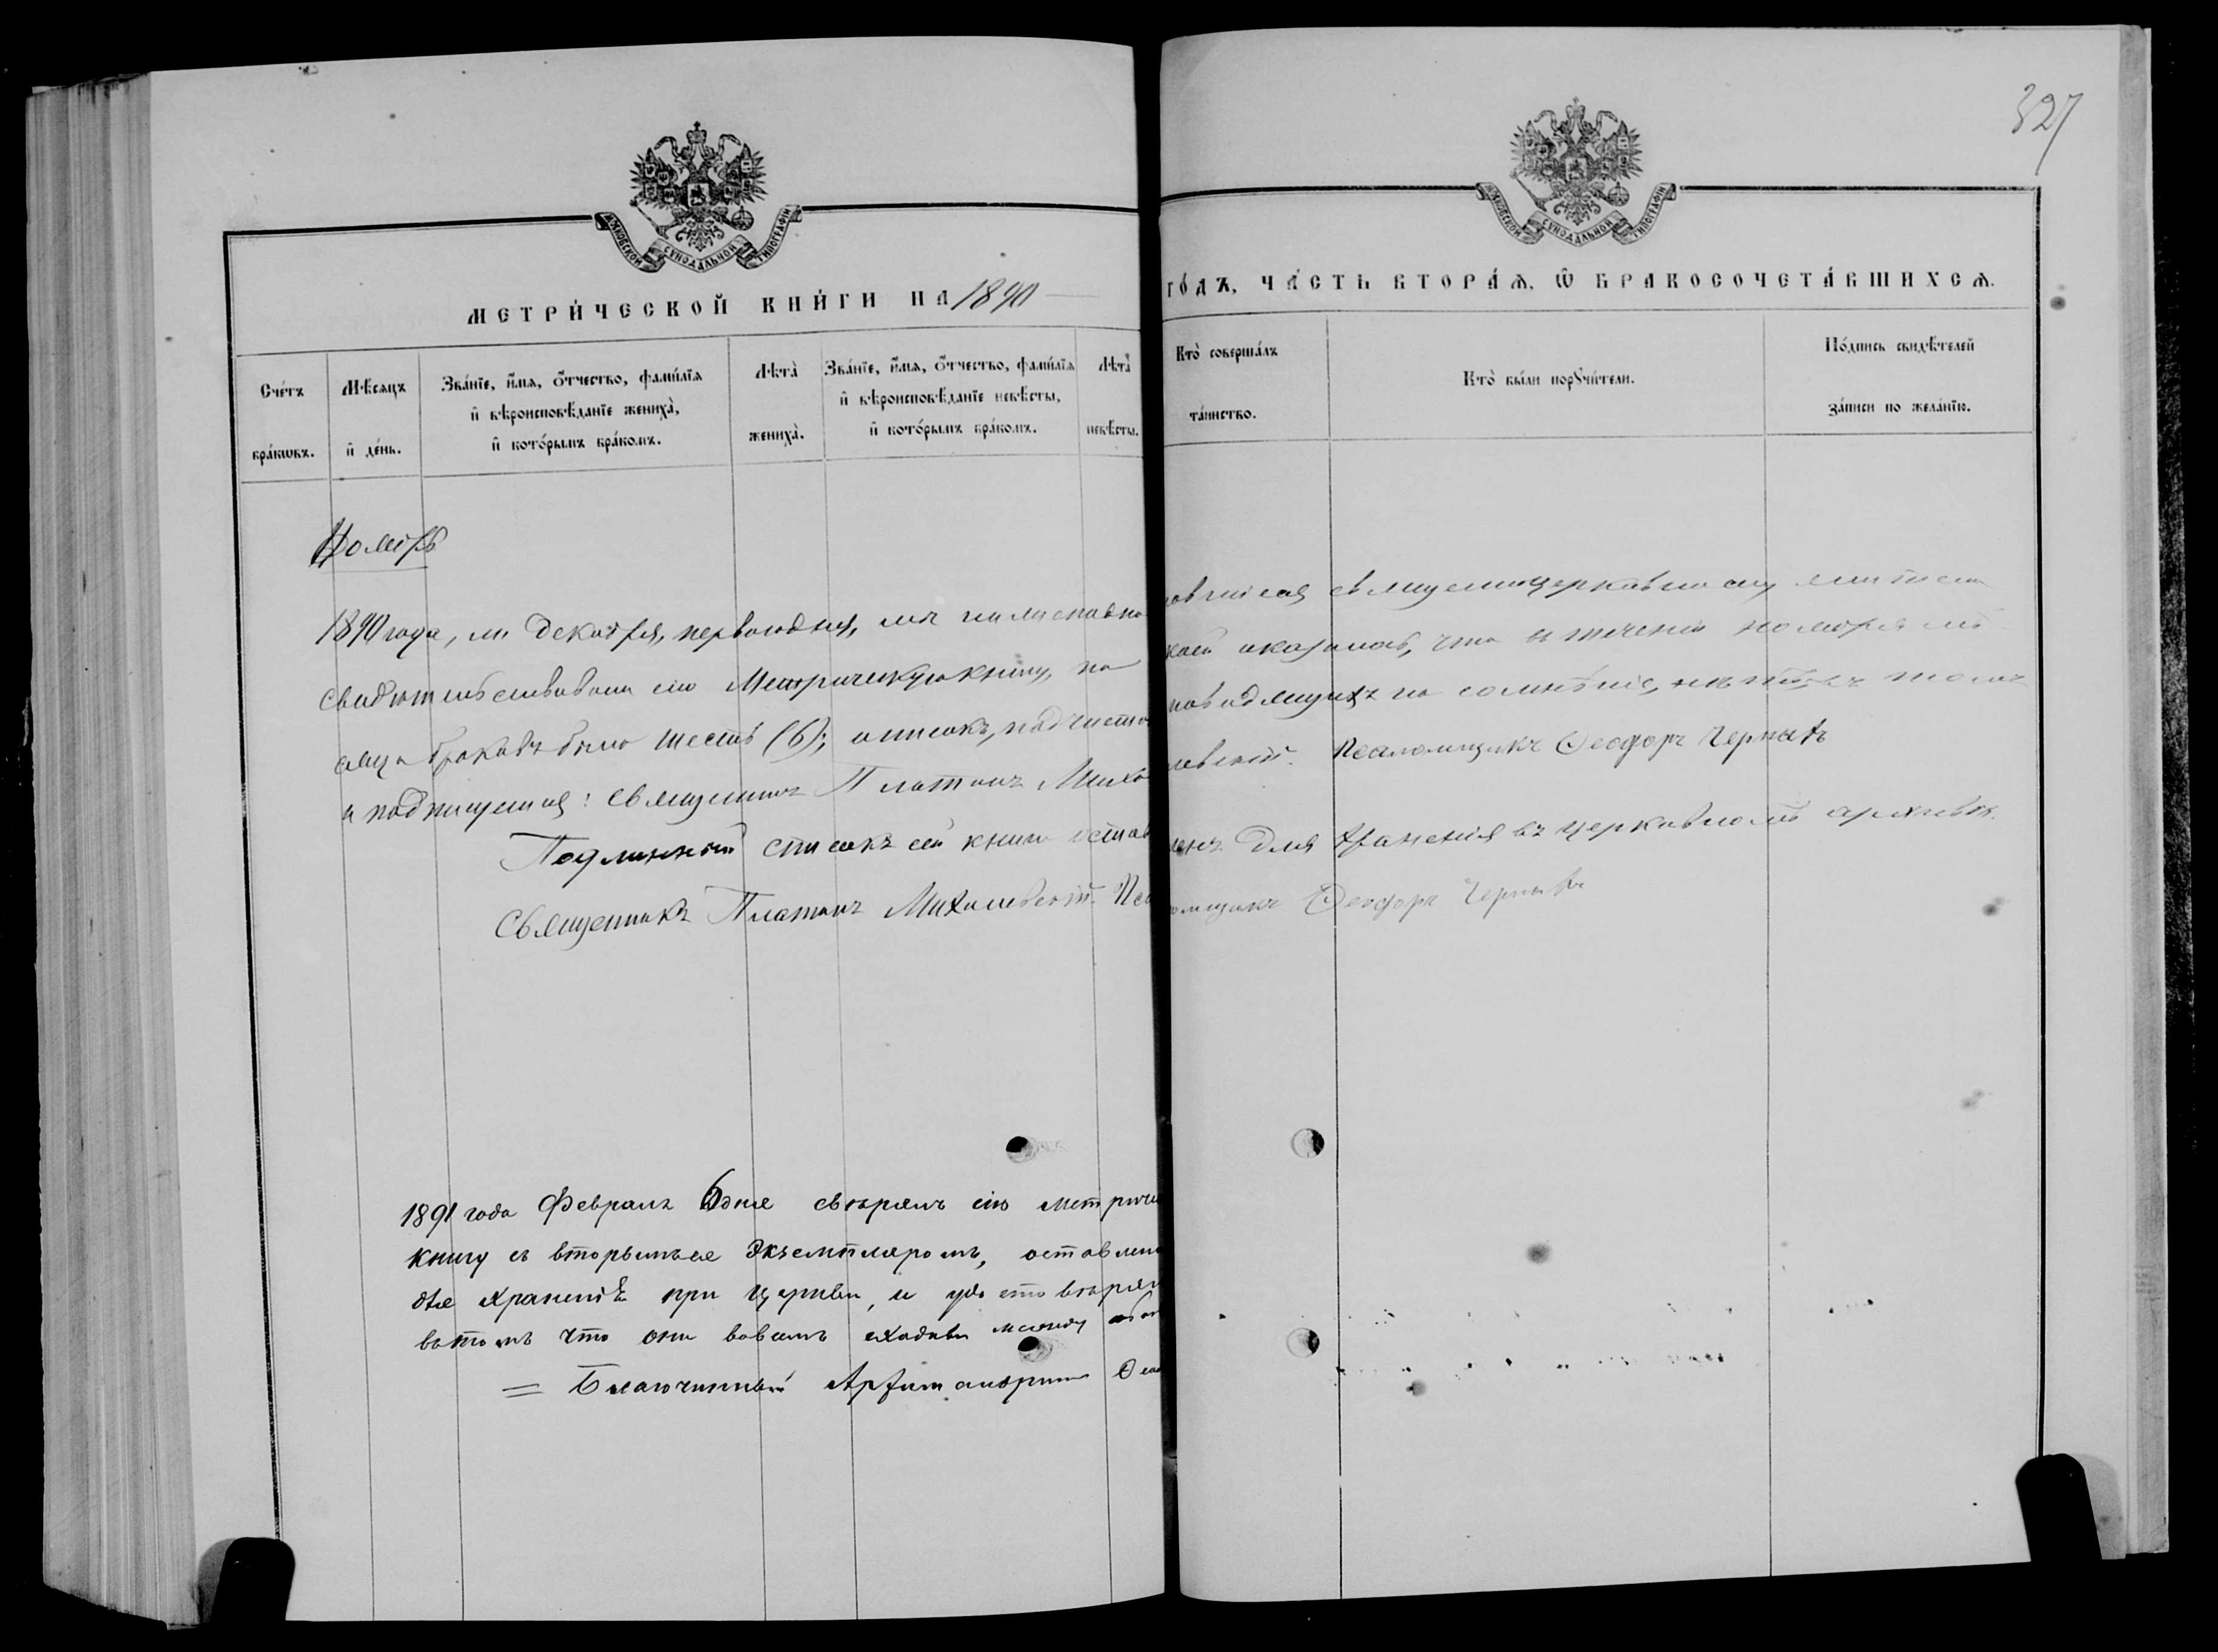 327
МОСКОВСКОЙ СѴНОДАЛЬНОЙ ТИПОГРАФІИ
МОСКОВСКОЙ СѴНОДАЛЬНОЙ ТИПОГРАФІИ
МЕТРИ́ЧЕСКОЙ КНИ́ГИ НА 1890 ГО́ДЪ, ЧА́СТЬ ВТОРА́Ѧ, Ѽ БРАКОСОЧЕТА́ВШИХСѦ.
Сче́тъ бра́кѡвъ.
Мѣ́сяцъ и҆ де́нь.
Зва́нїе, и҆́мѧ, ѻ҆́тчество, фами́лїѧ
и҆ вѣроисповѣ́данїе жениха̀,
и҆ кото́рымъ бра́комъ.
Лѣта̀ жениха̀.
Зва́нїе, и҆́мѧ, ѻ҆́тчество, фами́лїѧ
и҆ вѣроисповѣ́данїе невѣ́сты,
и҆ кото́рымъ бра́комъ.
Лѣта̀ невѣ́сты.
Кто̀ соверша́лъ та́инство.
Кто̀ бы́ли порꙋчи́тели.
По́дпись свидѣ́телей за́писи по жела́нїю.
Ноябрь
1890 года, Декабря, перваго дня, мы нижеподписавшіеся священноцерковнослужители
свидѣтельствовали сію Метрическую книгу, по коей оказалось, что въ теченіи ноября мѣ
сяца браковъ было шесть (6); описокъ, подчистокъ наводящихъ на сомнѣніе, нѣтъ, въ томъ
и подпишемся: Священникъ Платонъ Михалевскій. Псаломщикъ Ѳеодоръ Черныхъ
Подлинный списокъ сей книги оставленъ для храненія въ церковномъ архивѣ.
Священникъ Платонъ Михалевскій. Псаломщикъ Ѳеодоръ Черныхъ
1891 года Февраля 6 дня свѣрялъ сію метриче
книгу съ вторымъ ея экземпляромъ, оставлен
для храненія при церкви, и удостовѣряю
въ томъ что они во всемъ сходны между собою
= Благочинный Архимандритъ